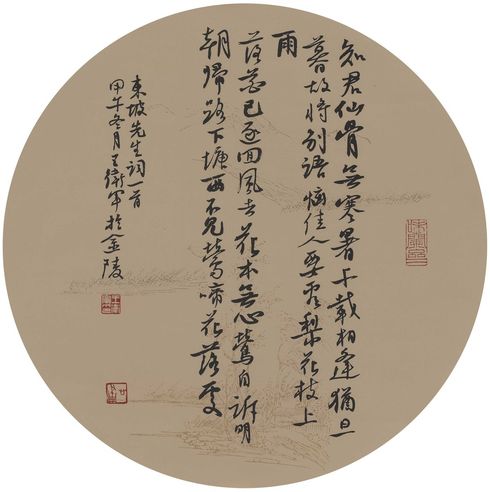 知君仙骨無寒暑千載相逢猶旦
暮故將別語惱佳人要看梨花枝上
雨
落花已逐回風去花本無心鶯自訴明
朝歸路下塘西不見鶯啼花落處
東坡先生詞一首
甲午冬月王衛軍於金陵